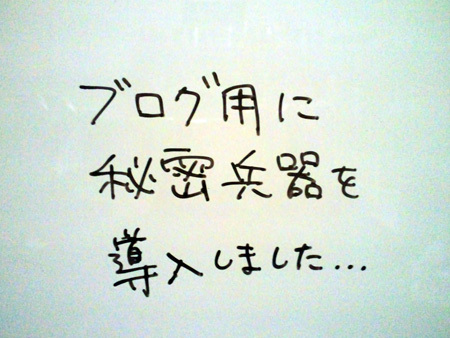 ブログ用に
秘密兵器を
導入しました...